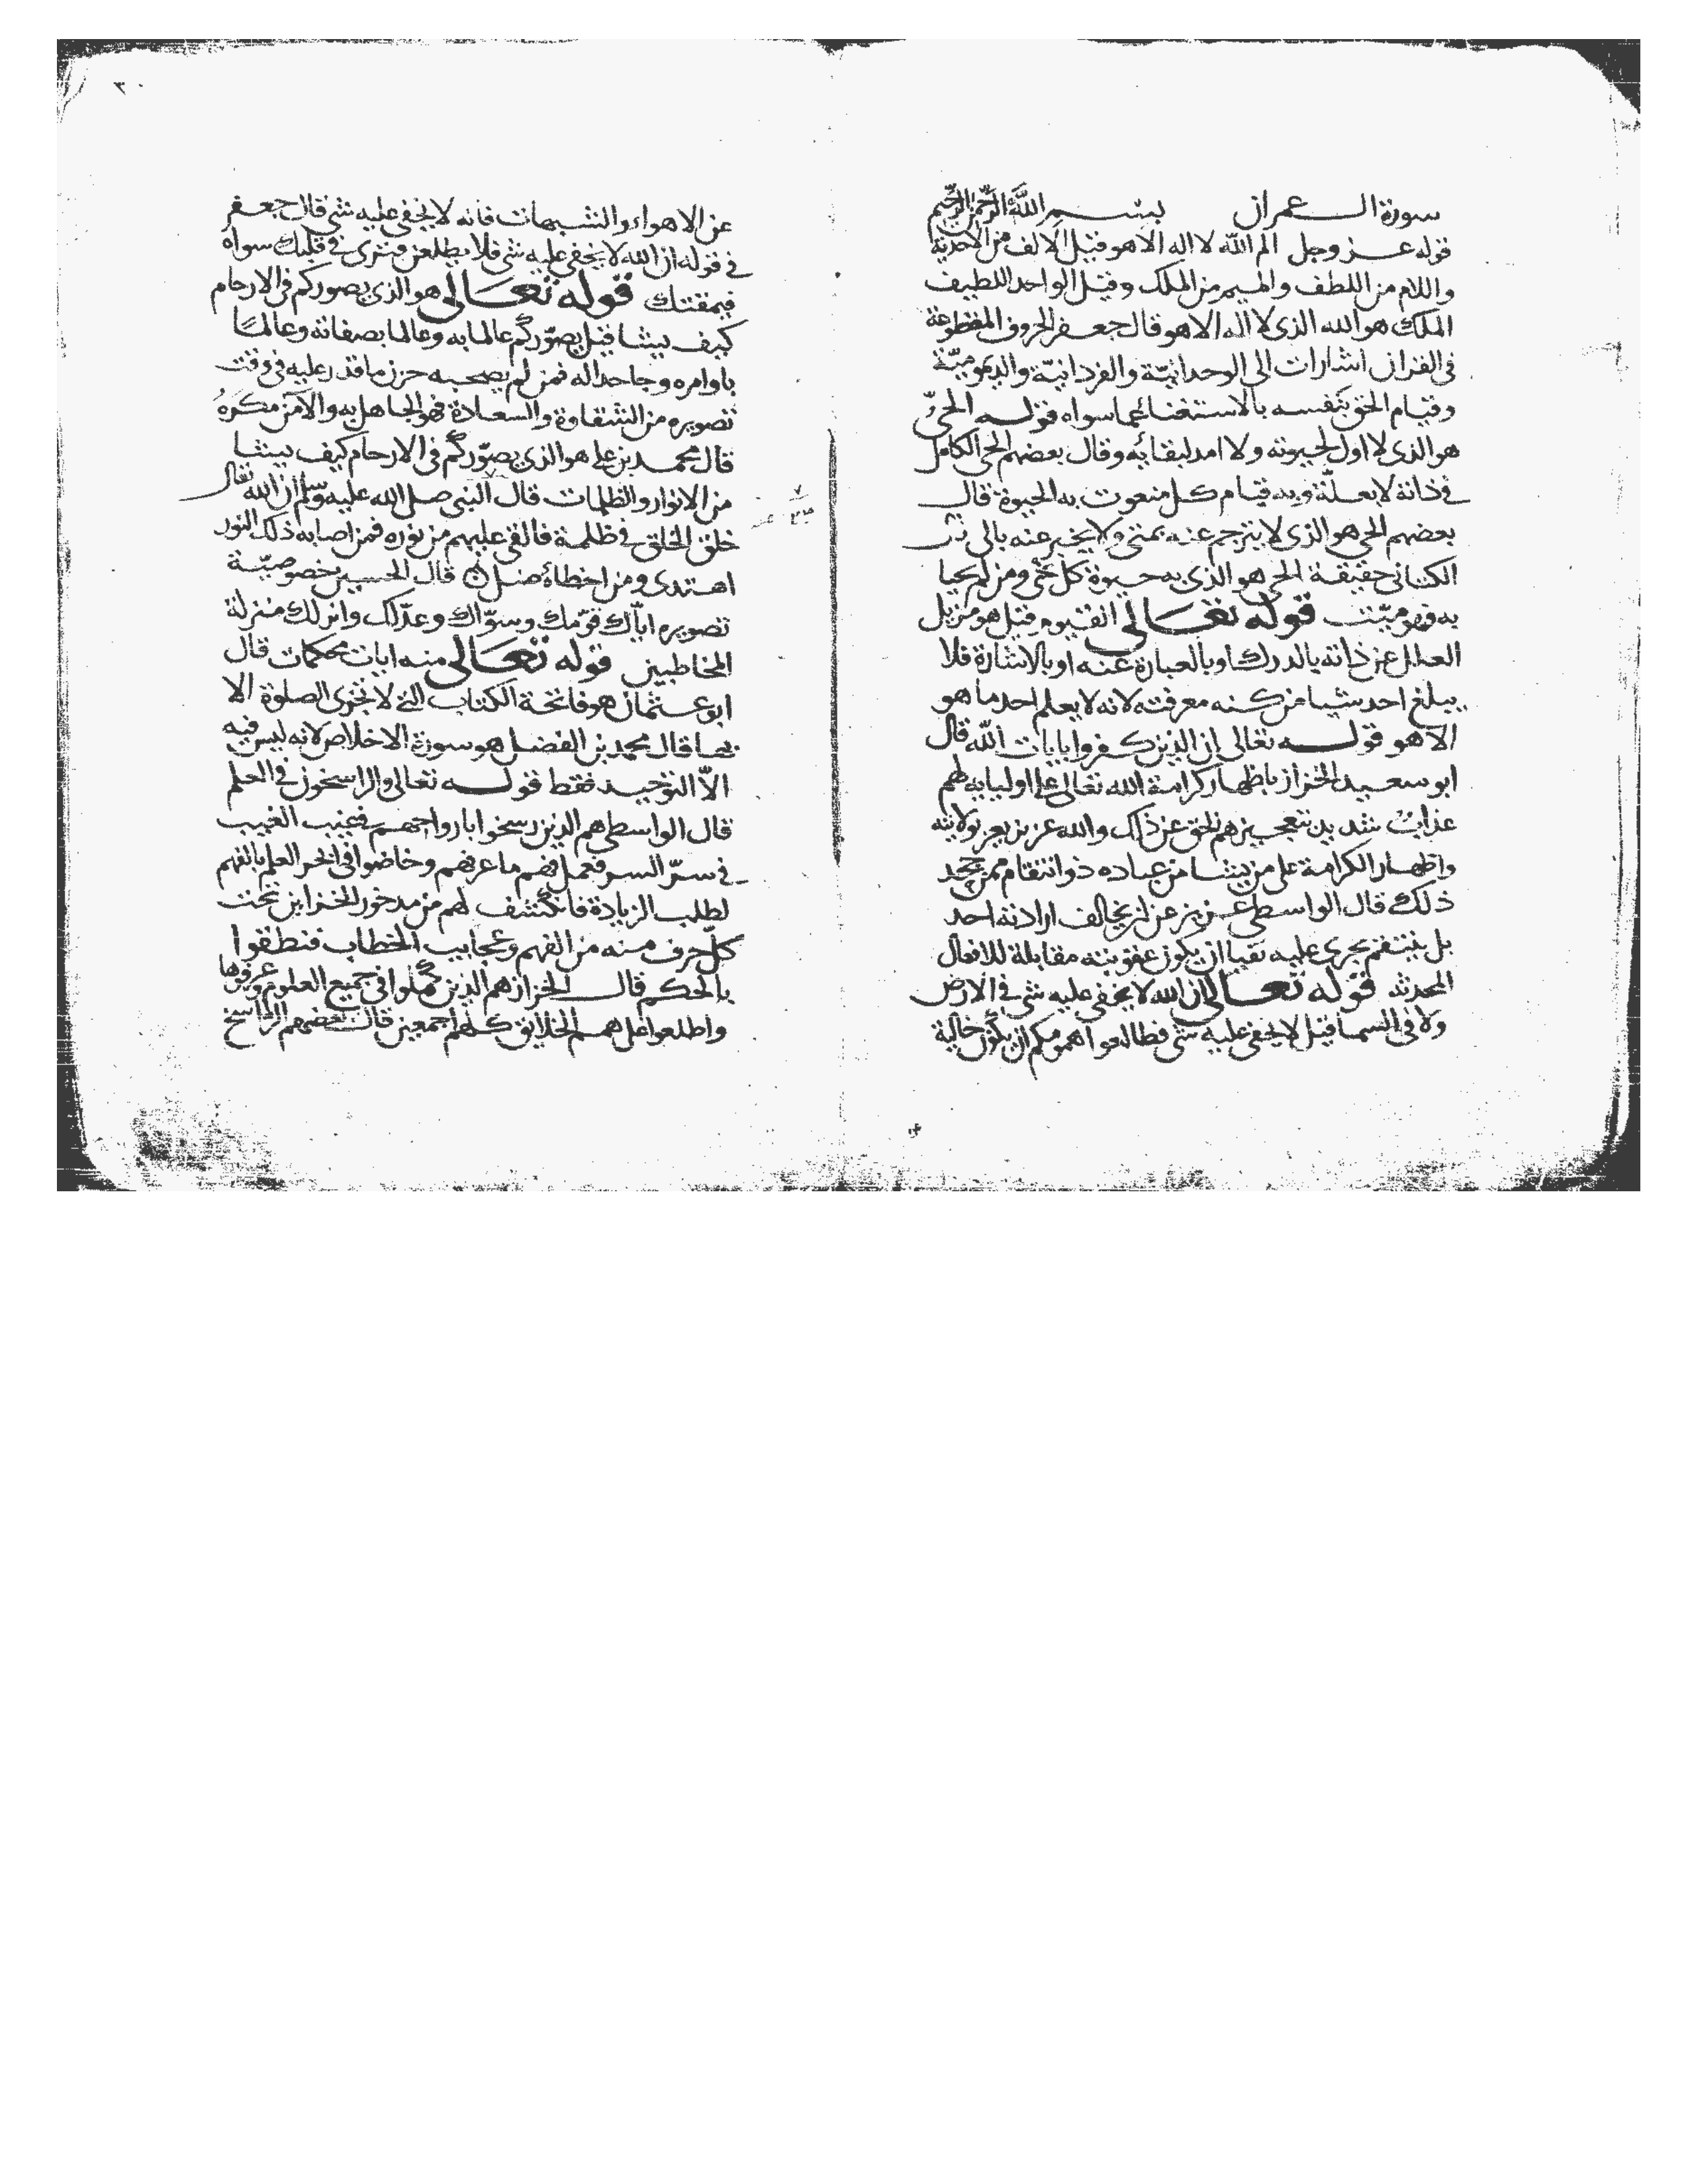 سورة ال عمران بسم الله الرحمن الرحيم
قوله عز وجل الم الله لا اله الا هو قيل الالف من الاحدية
واللام من اللطف والميم من الملك وقيل الواحد اللطيف
الملك هو الله الذى لا اله الا هو قال جعفر الحروف المقطوعة
فى القران اشارات الى الوحدانيّة والفردانيّة والديموميّة
وقيام الحق بنفسه بالاستغناء عما سواه قوله الحىّ
هو الذى لا اول لحيوته ولا امد لبقائه وقال بعضهم الحى الكامل
فى ذاته لا بعلّة وبه قيام كل منعوت به الحيوة قال
بعضهم الحى هو الذى لا يترجم عنه بمتى ولا يخبر عنه بالى
الكتانى حقيقة الحى هو الذى به حيوة كل حى ومن لم يحيا
به فهو ميّت قوله تعالى القيوم قيل هو مزيل
العلل عن ذاته بالدرك او بالعبارة عنه او بالاشارة فلا
يبلغ احد شيا من كنه معرفته لانه لا يعلم احد ما هو
الا هو قوله تعالى ان الذين كفروا بايات الله قال
ابو سعيد الخراز باظهار كرامة الله تعالى على اوليايه لهم
عذاب شديد بتعجيزهم الحق عن ذلك والله عزيز يعز بولايته
واظهار الكرامة على من يشا من عباده ذو انتقام ممن جحد
ذلك قال الواسطى عزيز عن ان يخالف ارادته احد
بل ينتقم بجرى عليه نفيا ان يكون عقوبته مقابلة للافعال
المحدثه قوله تعالى ان الله لا يخفى عليه شى فى الارض
ولا فى السما قيل لا يخفى عليه شى فطالعوا همومكم ان تكون خالية
٣٠
عن الاهواء والشبهات فانه لا يخفى عليه شى قال جعفر
فى قوله ان الله لا يخفى عليه شى فلا يطلعن فيرى فى قلبك سواه
فيمقتك قوله تعالى هو الذى يصوركم فى الارحام
كيف يشا قيل يصوّركم عالما به وعالما بصفاته وعالمًا
باوامره وجاحدا له فمن لم يصحبه حزن ما قدر عليه فى وقت
تصويره من الشقاوة والسعادة فهو الجاهل به والامن مكره
قال محمد بن على هو الذى يصوّركم فى الارحام كيف يشا
من الانوار والظلمات قال النبى صلى الله عليه وسلم ان الله تعالى
خلق الخلق فى ظلمة فالقى عليهم من نوره فمن اصابه ذلك النور
اهتدى ومن اخطاه ضل قال الحسين خصوصيّة
تصويره ايّاك قوّمك وسوّاك وعدّلك وانزلك منزلة
المخاطبين قوله تعالى منه ايات محكمات قال
ابو عثمان هو فاتحة الكتاب التى لا تجزى الصلوة الا
بها قال محمد بن الفضل هو سورة الاخلاص لانه ليس فيه
الّا التوحيد فقط قوله تعالى والراسخون فى العلم
قال الواسطى هم الذين رسخوا بارواحهم فى غيب الغيب
فى سرّ السر فعرفهم ما عرفهم وخاضوا فى بحر العلم بالفهم
لطلب الزيادة فانكشف لهم من مدخور الخزاين تحت
كلّ حرف منه من الفهم وعجايب الخطاب فنطقوا
بالحكم قال الخراز هم الذين كملوا فى جميع العلوم وعرفوها
واطلعوا على همم الخلايق كلهم اجمعين قال بعضهم الراسخ